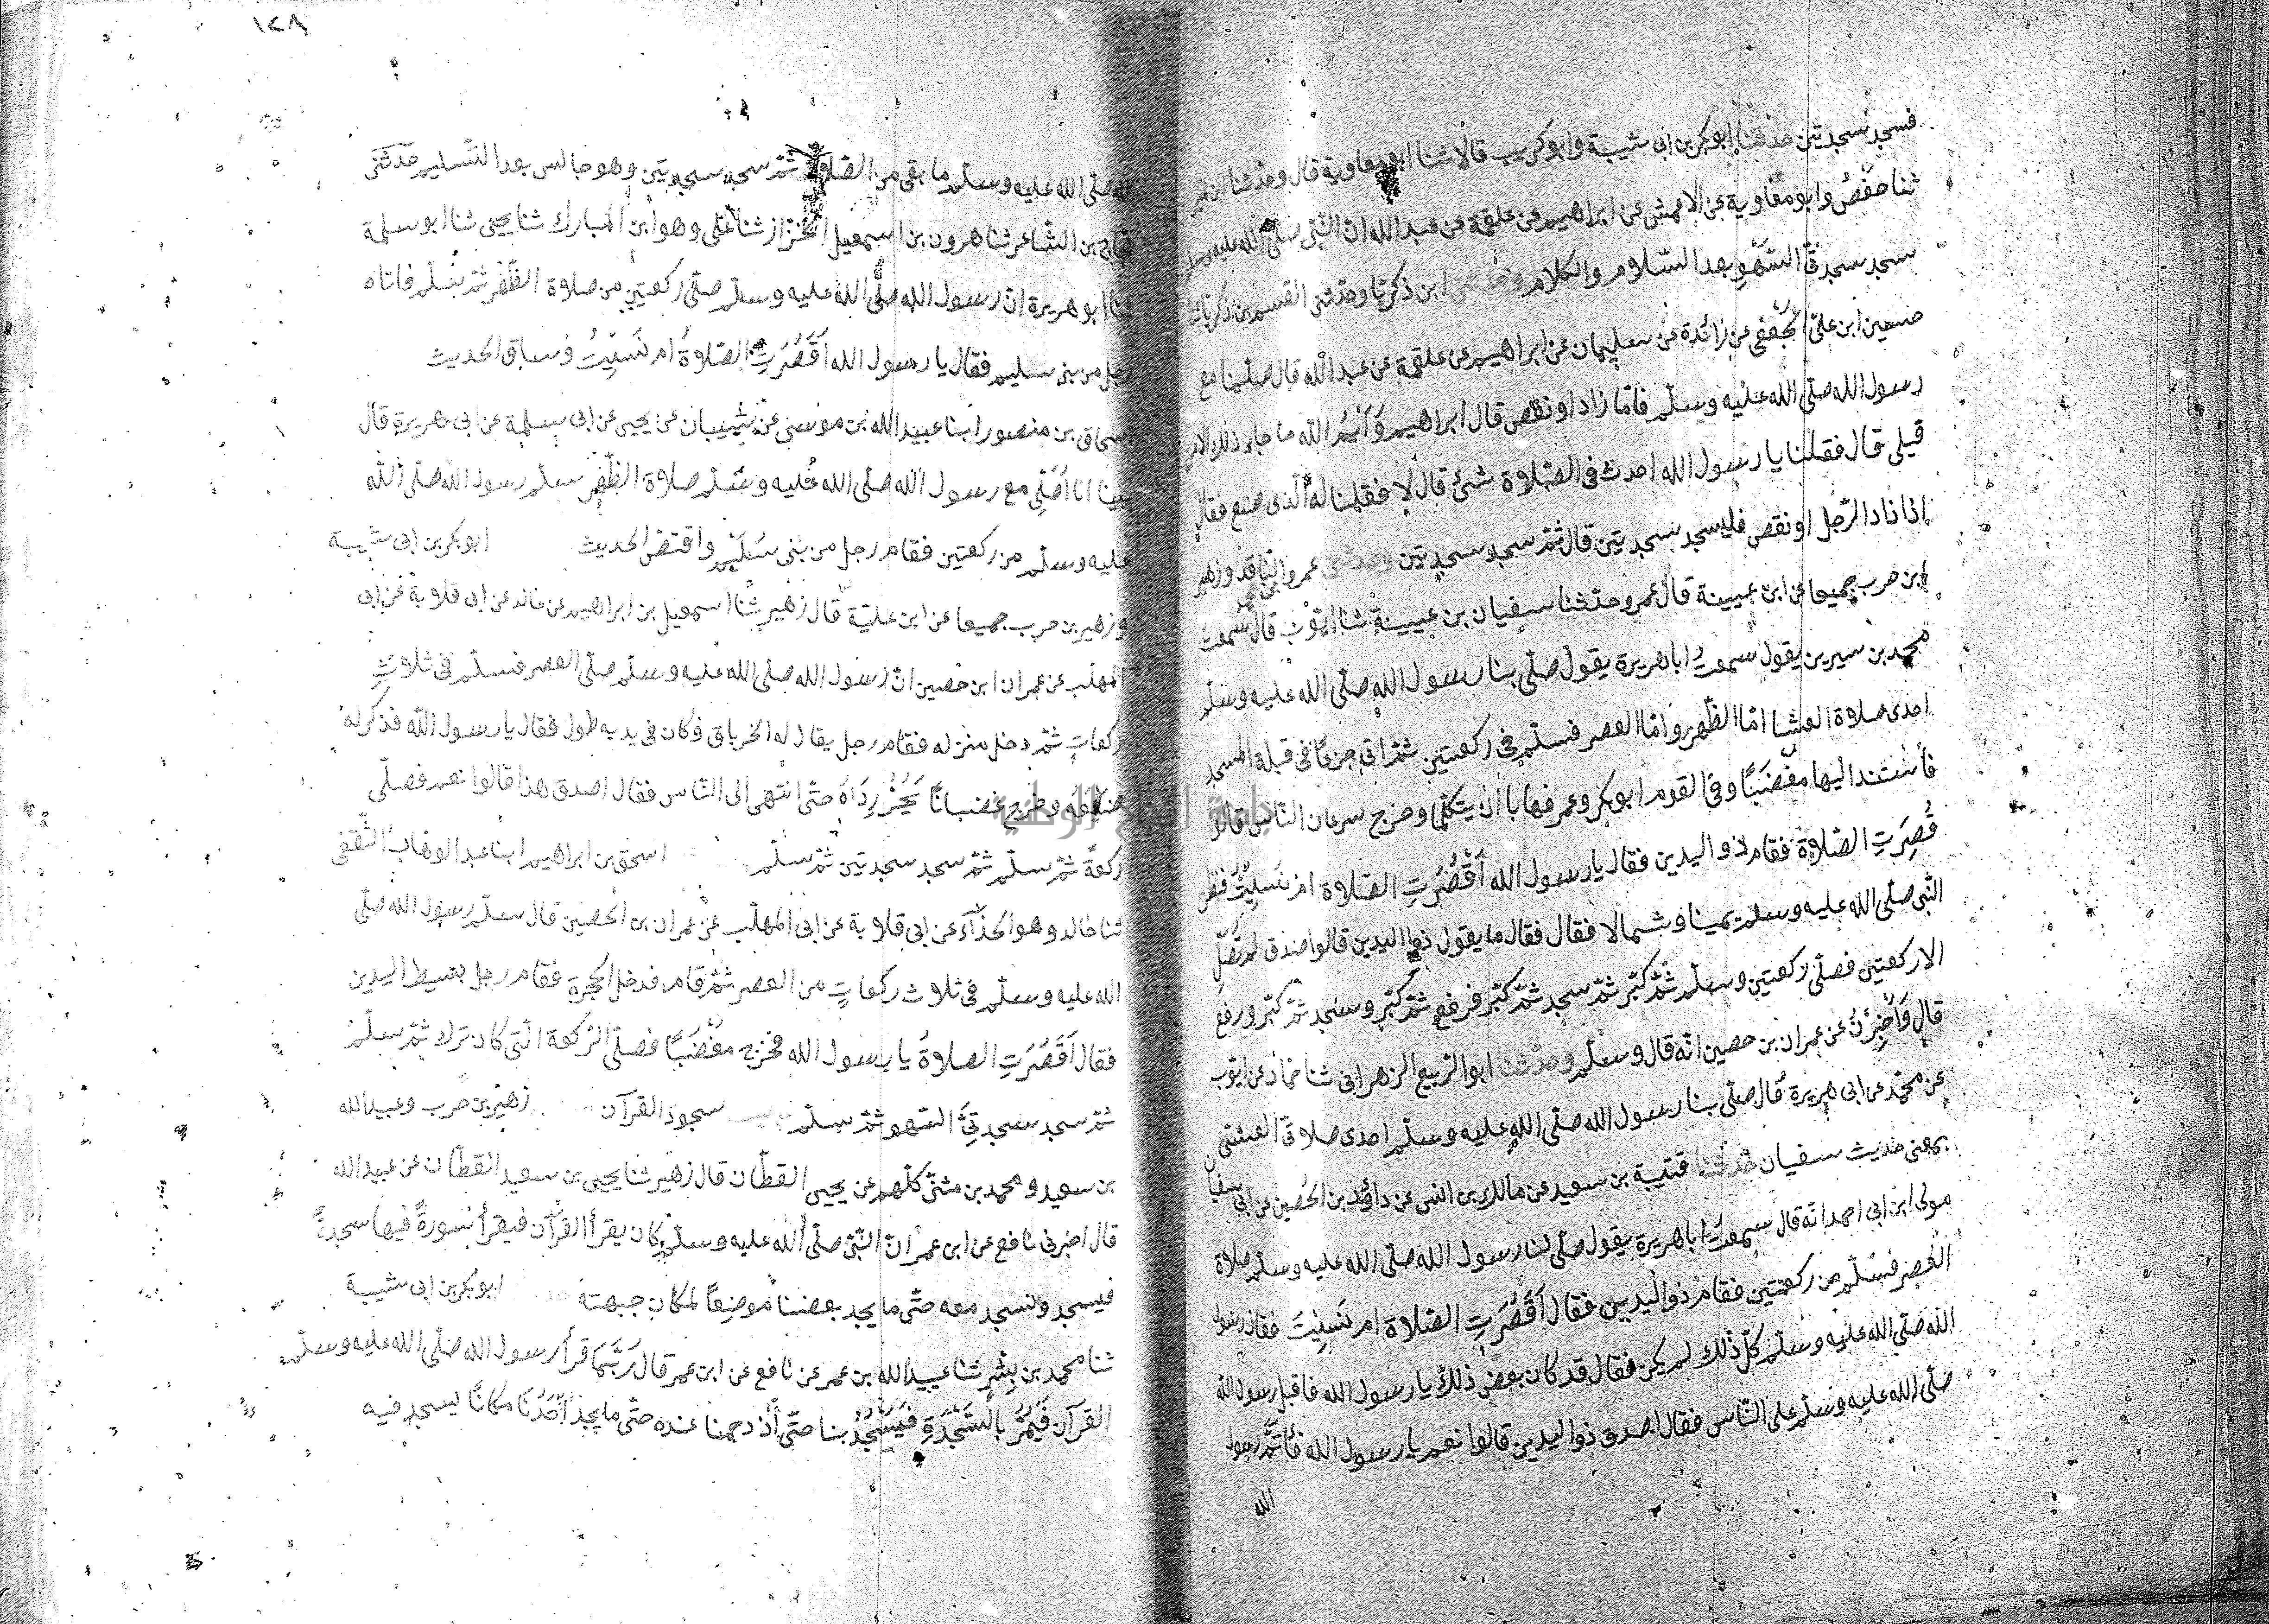 فسجد سجدتين حدثنا ابو بكر بن ابى شيبة وابو كريب قالا ثنا ابو معاوية قال وحدثنا ابن نمير
ثنا حفص وابو معاوية عن الاعمش عن ابراهيم عن علقمة عن عبد الله ان النبى صلى الله عليه وسلم
سجد سجدتى السهو بعد السلام والكلام وحدثنى ابن ذكريا وحدثنى القسم بن ذكريا ثنا
حسين ابن على الجعفى عن زائدة عن سليمان عن ابراهيم عن علقمة عن عبد الله قال صلينا مع
رسول الله صلى الله عليه وسلم فاما زاد او نقص قال ابراهيم وَأَيْمُ الله ما جاء ذلك الا من
قبلى قال فقلنا يا رسول الله احدث فى الصلاة شئ قال لا فقلنا له الذى صنع فقال
اذا زاد الرّجل او نقص فليسجد سجدتين قال ثمّ سجد سجدتين وحدثنى عمرو الناقد وزهير
ابن حرب جميعا عن ابن عيينة قال عمرو حدثنا سفيان بن عيينة ثنا ايّوب قال سمعت
محمد بن سيرين يقول سمعتُ ابا هريرة يقول صلّى بنا رسول الله صلّى الله عليه وسلّم
احدى صلاة العشا امّا الظّهر وامّا العصر فسلّم فى ركعتين ثمّ اتى جزعًا فى قبلة المسجد
فاستند اليها مغضَبًا وفى القوم ابو بكر وعمر فهابا ان يتكلّما وخرج سرعان النّاس قالوا
قُصِرَتِ الصّلاة فقام ذو اليدين فقال يا رسول الله أَقَصُرَتِ الصّلاة ام نَسِيْتَ فنظر
النّبى صلّى الله عليه وسلّم يمينا وشمالا فقال فقال ما يقول ذوا اليدين قالوا صدق لم تُصَلِّ
الا ركعتين فصلّى ركعتين وسلّم ثمّ كبّر ثمّ سجد ثمّ كبّر فرفع ثمّ كبّر وسجد ثمّ كبّر ورفع
قال وَأُخْبِرْتُ عن عمران بن حصين انّه قال وسلّم وحدّثنا ابو الرّبيع الزهرانى ثنا حمّاد عن ايّوب
عن محمّد عن ابى هريرة قال صلّى بنا رسول الله صلّى الله عليه وسلّم احدى صلاتى العشىّ
بمعنى حديث سفيان حدثنا قتيبة بن سعيد عن مالك بن انس عن داوُد بن الحُصين عن ابى سفيان
مولى ابن ابى احمد انّه قال سمعتُ ابا هريرة يقول صلّى لنا رسول الله صلّى الله عليه وسلّم صلاة
العصر فسلّم من ركعتين فقام ذو اليدين فقال أَقَصُرَتِ الصّلاة ام نَسِيْتَ فقال رسول
الله صلّى الله عليه وسلّم كلّ ذلك لم يكن فقال قد كان بعض ذلك يا رسول الله فاقبل رسول الله
صلّى الله عليه وسلّم على النّاس فقال اصدق ذوا اليدين قالوا نعم يا رسول الله فأتمّ رسول
الله
١٢٨
الله صلّى الله عليه وسلّم ما بقى من الصّلاة ثمّ سجد سجدتين وهو جالس بعد التّسليم حدّثنى
حجاج بن الشّاعر ثنا هرون بن اسمعيل الخزّاز ثنا علىّ وهو ابن المبارك ثنا يحيى ثنا ابو سلمة
ثنا ابو هريرة انّ رسول الله صلّى الله عليه وسلّم صلّى ركعتين من صلاة الظّهر ثمّ سلّم فاتاه
رجل من بنى سليم فقال يا رسول الله أَقَصُرَتِ الصّلاةُ ام نَسِيْتَ وساق الحديث
اسحاق بن منصور ابنا عبيد الله بن موسى عن شيبان عن يحيى عن ابى سلمة عن ابى هريرة قال
بينا انا أُصَلِّى مع رسول الله صلّى الله عليه وسلّم صلاة الظّهر سلّم رسول الله صلّى الله
عليه وسلّم من ركعتين فقام رجل من بنى سُلَيْمٍ واقتصّ الحديث ابو بكر بن ابى شيبة
وزهير بن حرب جميعا عن ابن عليّة قال زهير ثنا اسمعيل بن ابراهيم عن خالد عن ابى قلابة عن ابى
المهلّب عن عمران ابن حُصين انّ رسول الله صلّى الله عليه وسلّم صلّى العصر فسلّم فى ثلاثِ
ركعاتٍ ثمّ دخل منزله فقام رجل يقال له الخرباق وكان فى يديه طول فقال يا رسول الله فذكر له
صنعَهُ وخرج غضبانًا يَجُرُّ رِدَاهُ حتّى انتهى الى النّاس فقال اصدق هذا قالوا نعم فصلّى
ركعةً ثمّ سلّم ثمّ سجد سجدتين ثمّ سلّم اسحق بن ابراهيم ابنا عبد الوهّاب الثّقفى
ثنا خالد وهو الحذّاء عن ابى قلابة عن ابى المهلّب عن عمران بن الحصين قال سلّم رسول الله صلّى
الله عليه وسلّم فى ثلاث ركعاتٍ من العصر ثمّ قام فدخل الحجرة فقام رجل بسيط اليدين
فقال أَقَصُرَتِ الصلاةُ يا رسول الله فخرج مغْضَبًا فصلّى الرّكعة الّتى كان ترك ثمّ سلّم
ثمّ سجد سجدتىّ السّهو ثمّ سلّم سجود القرآن زهير بن حرب وعبيد الله
بن سعيد ومحمد بن مثنّى كلّهم عن يحيى القطّان قال زهير ثنا يحيى بن سعيد القطّان عن عبيد الله
قال اخبرنى نافع عن ابن عمر انّ النّبىّ صلّى الله عليه وسلّم كان يقرأ القرآن فيقرأ سورةً فيها سجدةً
فيسجد ونسجد معه حتّى ما يجد بعضنا موضِعًا لمكان جبهته ابو بكر بن ابى شيبة
ثنا محمد بن بِشْرٍ ثنا عبيد الله بن عمر عن نافع عن ابن عمر قال رُبَّمَا قرأ رسول الله صلّى الله عليه وسلّم
القرآن فَيَمُرُّ بالسَّجْدَةِ فَيَسْجُدُ بنا حتّى أزدحمنا عنده حتّى ما يجد أَحَدُنَا مكانًا يسجد فيه
جامعة النجاح الوطنية